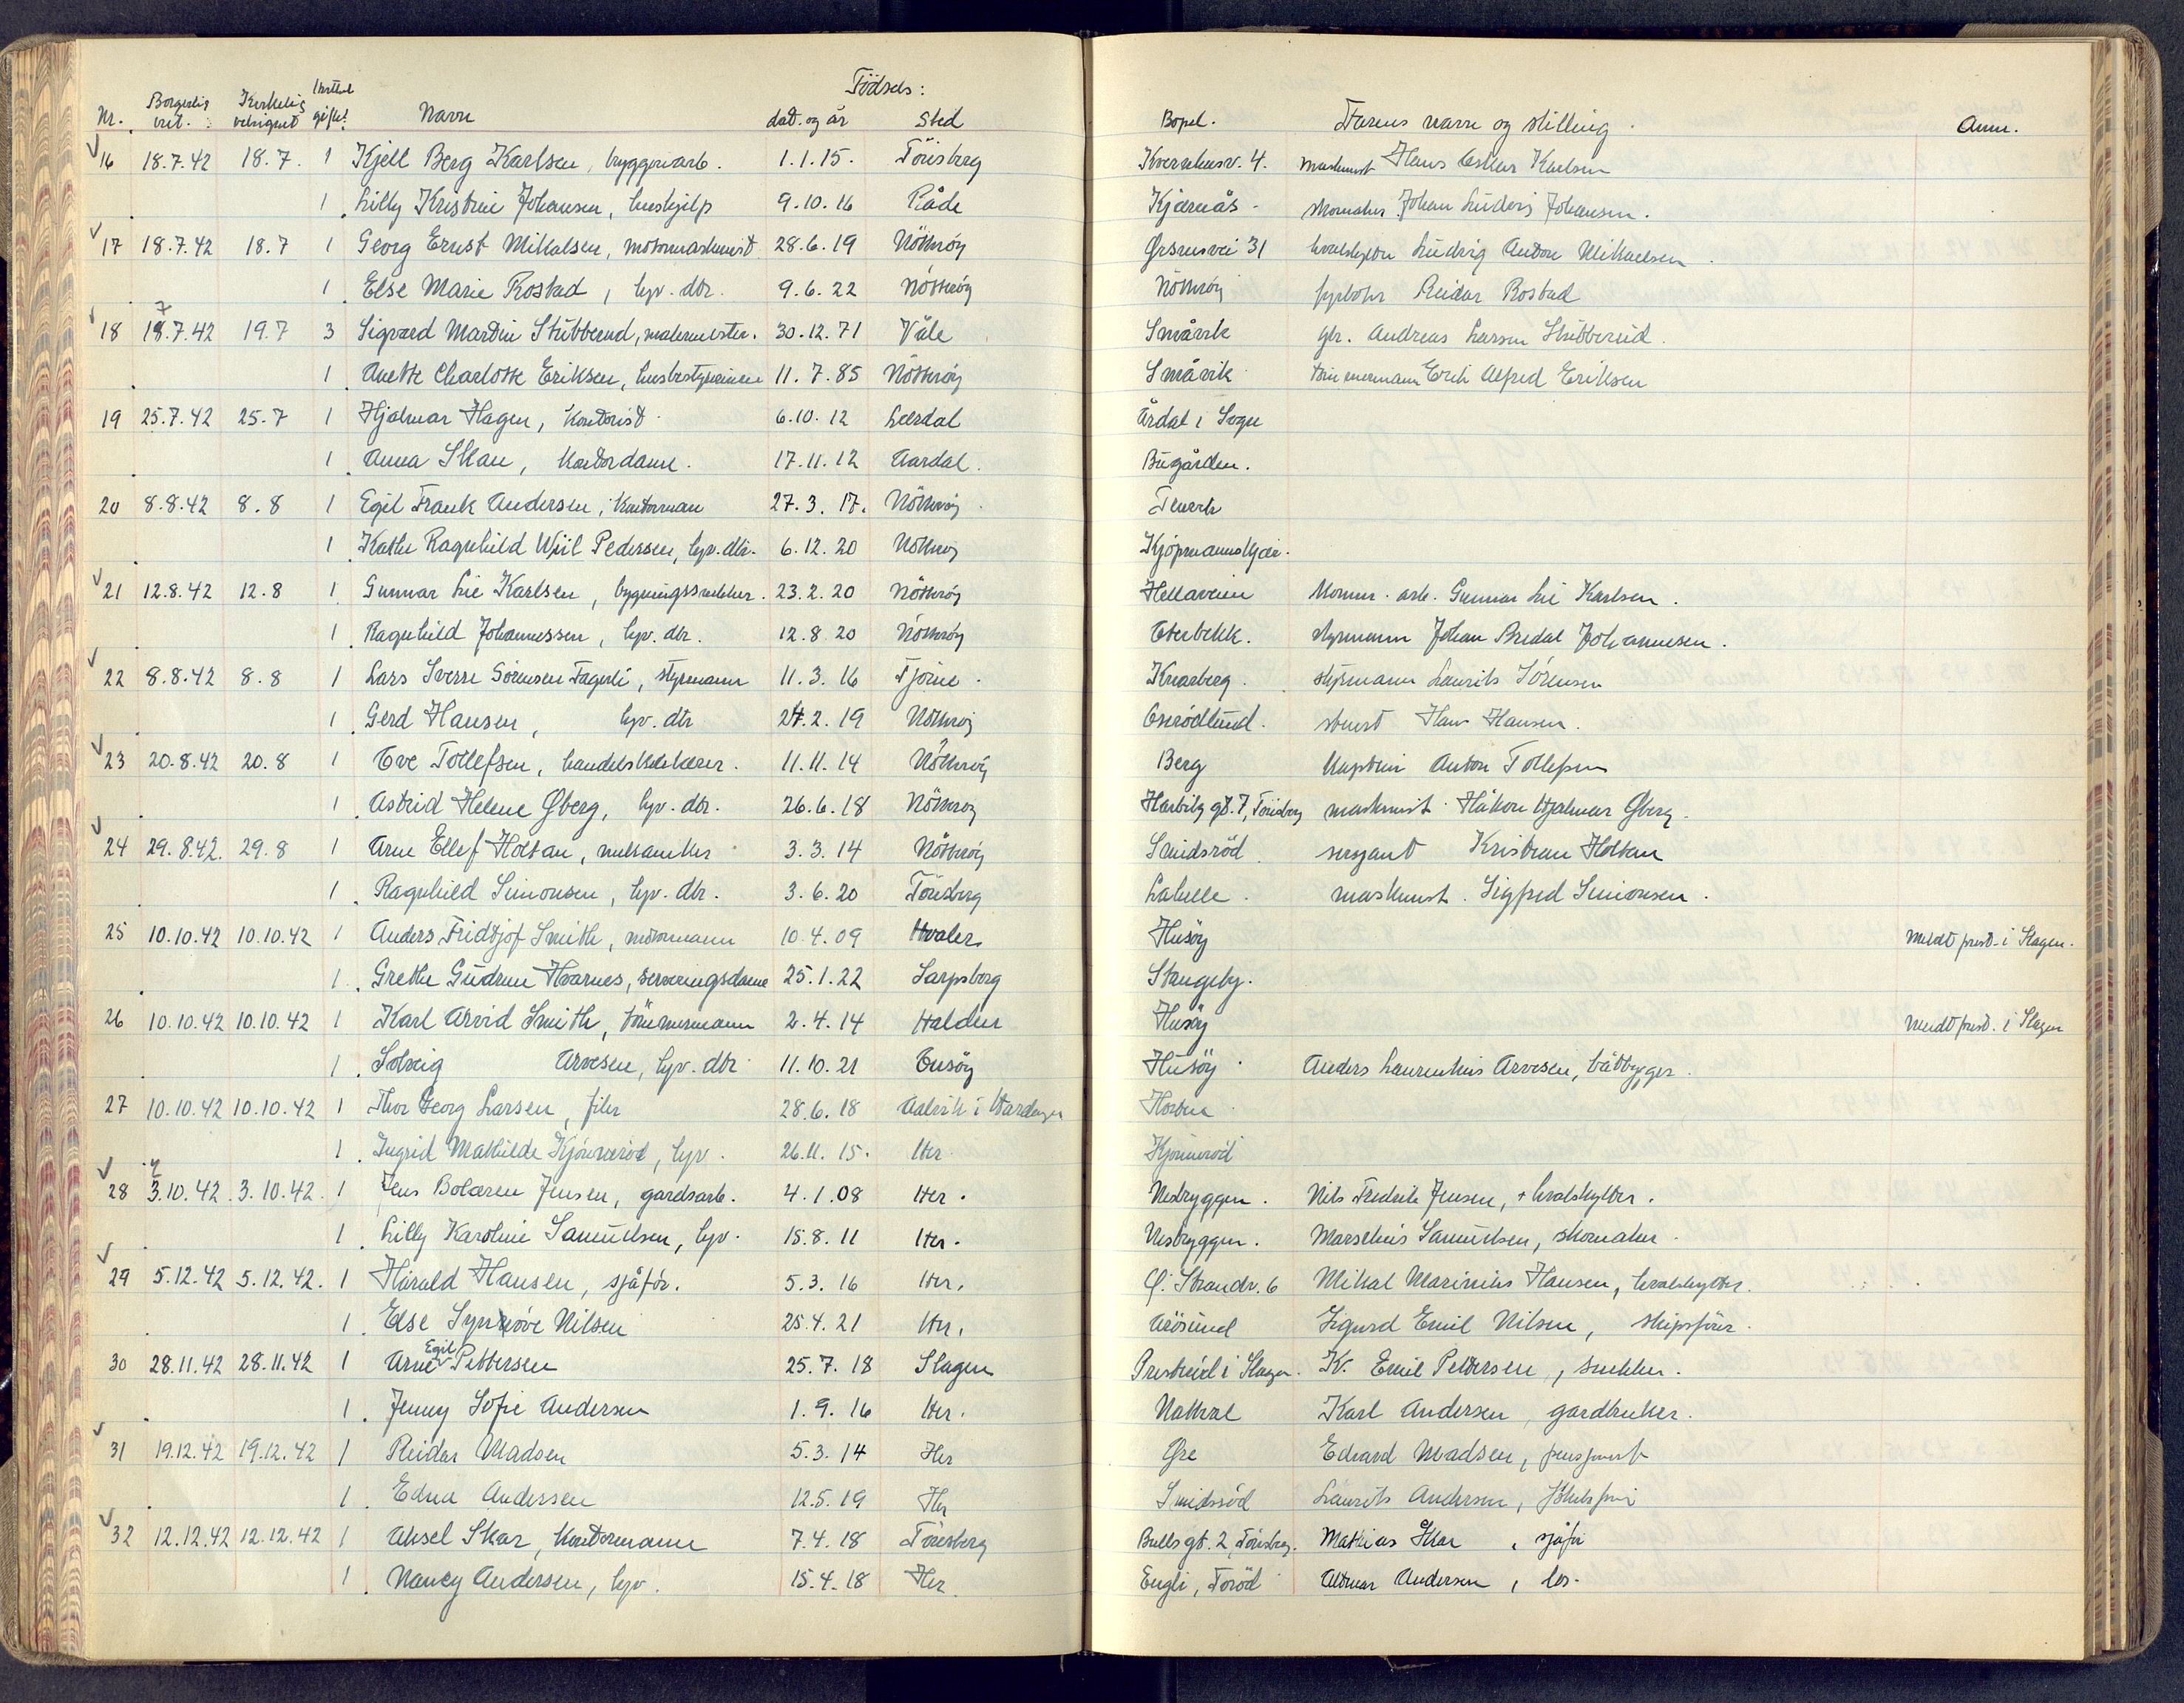 Födsels:
Nr. Borgerlig viet. Kirkelig velsignet gift? Navn dat. og år Sted Bopel. Farens navn og stilling. Anm.
16 18.7.42 18.7. 1 Kjell Berg Karlsen, bryggeriarb. 1.1.15. Tönsberg Kvernhusv. 4. maskinist Hans Oskar Karlsen
1 Lilly Kristine Johansen, hushjelp 9.10.16 Råde Kjærnås. skomaker Johan Ludvig Johansen.
17 18.7.42 18.7 1 Georg Ernst Mikalsen, motormaskinist 28.6.19 Nötteröy Örsnesvei 31 hvalskytter Ludvig Anton Mikaelsen
1 Else Marie Rostad, hjv. dtr. 9.6.22 Nötteröy Nötteröy fyrböter Reidar Rostad
18 18.7.42 19.7 3 Sigvard Martin Stubberud, malermester. 30.12.71 Våle Småvik gbr. Andreas Larsen Stubberud.
1 Anette Charlotte Eriksen, husbestyrerinne 11.7.85 Nötteröy Småvik tömmermann Erik Alfred Eriksen
19 25.7.42 25.7 1 Hjalmar Hagen, kontorist 6.10.12 Lærdal Årdal i Sogn
1 Anna Skau, kontordame. 17.11.12 Aardal. Bugården.
20 8.8.42 8.8 1 Egil Frank Andersen, kontorman 27.3.17. Nötteröy
1 Kathe Ragnhild Wiil Pedersen, hjv. dtr. 6.12.20 Nötteröy Kjöpmannskjær.
21 12.8.42 12.8 1 Gunnar Lie Karlsen, bygningssnekker. 23.2.20 Nötteröy Hellaveien kommun. arb. Gunnar Lie Karlsen.
1 Ragnhild Johannessen, hjv. dtr. 12.8.20 Nötteröy Oterbekk. styrmann Johan Bredal Johannesen.
22 8.8.42 8.8 1 Lars Sverre Sörensen Fagerli, styrmann 11.3.16 Tjöme. Knarberg. styrmann Laurits Sörensen
1 Gerd Hansen, hjv. dtr 24.2.19 Nötteröy Oserödlund. stuert Hans Hansen.
23 20.8.42 20.8 1 Ove Tollefsen, handelsbestyrer. 11.11.14 Nötteröy Berg Kaptein Anton Tollefsen
1 Astrid Helene Öberg, hjv. dtr. 26.6.18 Nötteröy Harbitz gt. 7, Tönsberg maskinist Håkon Hjalmar Öberg.
24 29.8.42. 29.8 1 Arne Ellef Holtan, mekaniker 3.3.14 Nötteröy Smidsröd sersjant Kristian Holtan
1 Ragnhild Simonsen, hjv. dtr. 3.6.20 Tönsberg Labelle. maskinist. Sigfred Simonsen.
25 10.10.42 10.10.42 1 Anders Fridtjof Smith, motormann 10.4.09 Hvaler Husöy meldt prest. i Slagen.
1 Grethe Gudrun Hvarnes, serveringsdame 25.1.22 Sarpsborg Stangeby.
26 10.10.42 10.10.42 1 Karl Arvid Smith, tömmermann 2.4.14 Halden Husöy meldt prest. i Slagen
1 Solveig Arvesen, hjv. dtr 11.10.21 Husöy Husöy Anders Laurentius Arvesen, båtbygger.
27 10.10.42 10.10.42 1 Thor Georg Larsen, filer 28.6.18 Aalvik i Hardanger Horten
1 Ingrid Mathilde Kjönneröd, hjv. 26.11.15. Her. Kjönneröd
28 3.10.42. 3.10.42. 1 Jens Bolæren Jensen, gardsarb. 4.1.08 Her. Vestryggen. Nils Fredrik Jensen, + hvalskytter.
1 Lilly Karoline Samuelsen, hjv. 15.8.11 Her. Vestryggen. Marselius Samuelsen, skomaker.
29 5.12.42 5.12.42. 1 Harald Hansen, sjåför. 5.3.16 Her. Ö. Strandv. 6 Mikal Marinius Hansen, hvalskytter.
1 Else Synnöve Nilsen 25.4.21 Her. Årösund Sigurd Emil Nilsen, skipsförer.
30 28.11.42 28.11.42 1 Arne Egil Pettersen 25.7.18 Slagen i Slagen. K. Emil Pettersen, snekker.
1 Jenny Sofie Andersen 1.9.16 Her. Nattval Karl Andersen, gardbruker.
31 19.12.42 19.12.42 1 Reidar Madsen 5.3.14 Her Öre Edvard Madsen, pensjonist
1 Edna Andersen 12.5.19 Her Smidsröd Laurits Andersen,
32 12.12.42 12.12.42 1 Aksel Skar, kontormann 7.4.18 Tönsberg Bulls gt. 2, Tönsberg. Mathias Skar, sjåför
1 Nancy Andersen, hjv. 15.4.18 Her. Engli, Toröd Altmar Andersen, los.